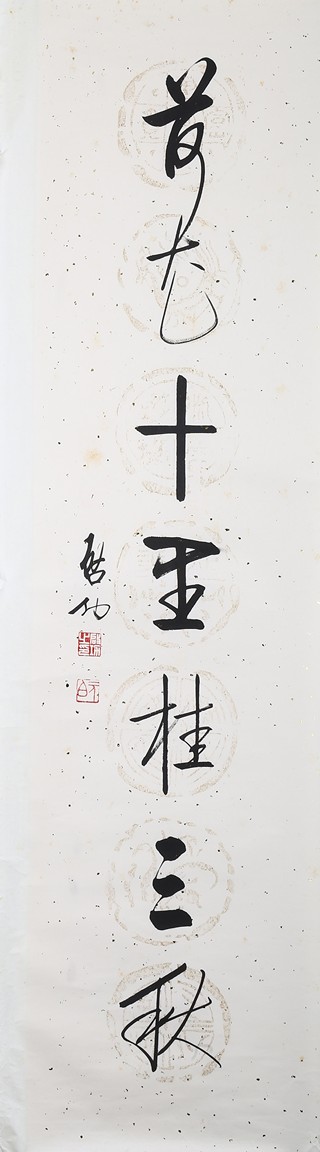 荷花十里桂三秋
启功